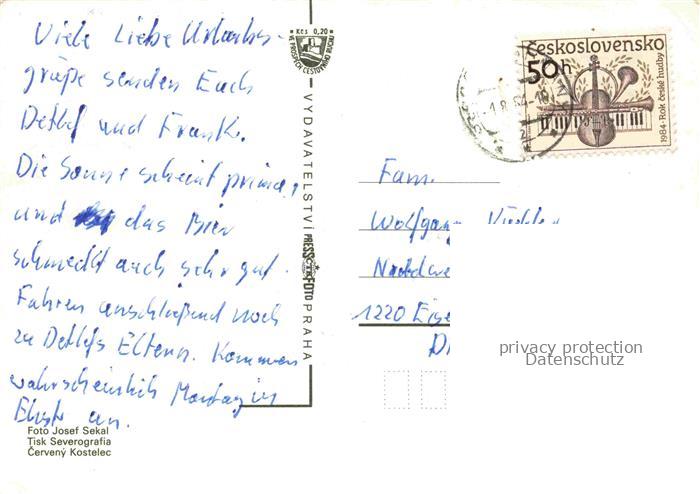 Viele Liebe Urlaubs-
grüße senden Euch
Detlef und Frank.
Die Sonne scheint prima,
und das Bier
schmeckt auch sehr gut.
Fahren anschließend noch
zu Detlefs Eltern. Kommen
wahrscheinlich Montag in
an.
Foto Josef Sekal
Tisk Severografia
Červený Kostelec
Kčs 0,20
VE PROSPĚCH CESTOVNÍHO RUCHU
VYDAVATELSTVÍ PRESSFOTO PRAHA
Československo
50h
1984 · Rok české hudby
Fam.
Wolfgang
1220 Eise
privacy protection
Datenschutz